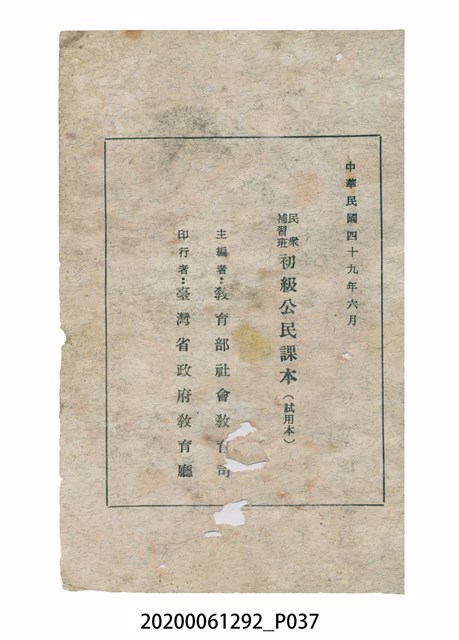 中華民國四十九年六月
民眾補習班 初級公民課本（試用本）
主編者：教育部社會教育司
印行者：臺灣省政府教育廳
20200061292_P037